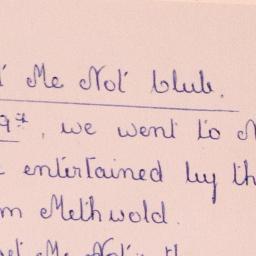 Me Not Club.
, we went to
entertained by th
m Methwold.
Me Not